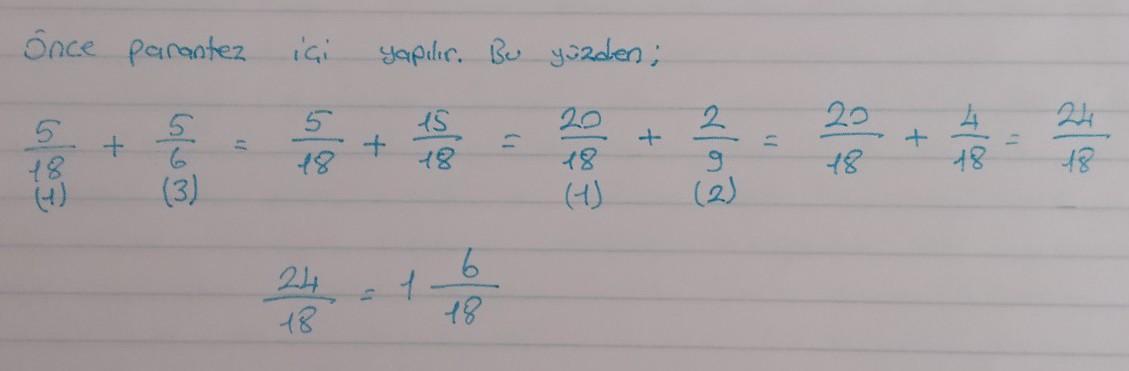 Önce parantez içi yapılır. Bu yüzden;
5/18 + 5/6 = 5/18 + 15/18 = 20/18 + 2/9 = 20/18 + 4/18 = 24/18
(1) (3) (1) (2)
24/18 = 1 6/18